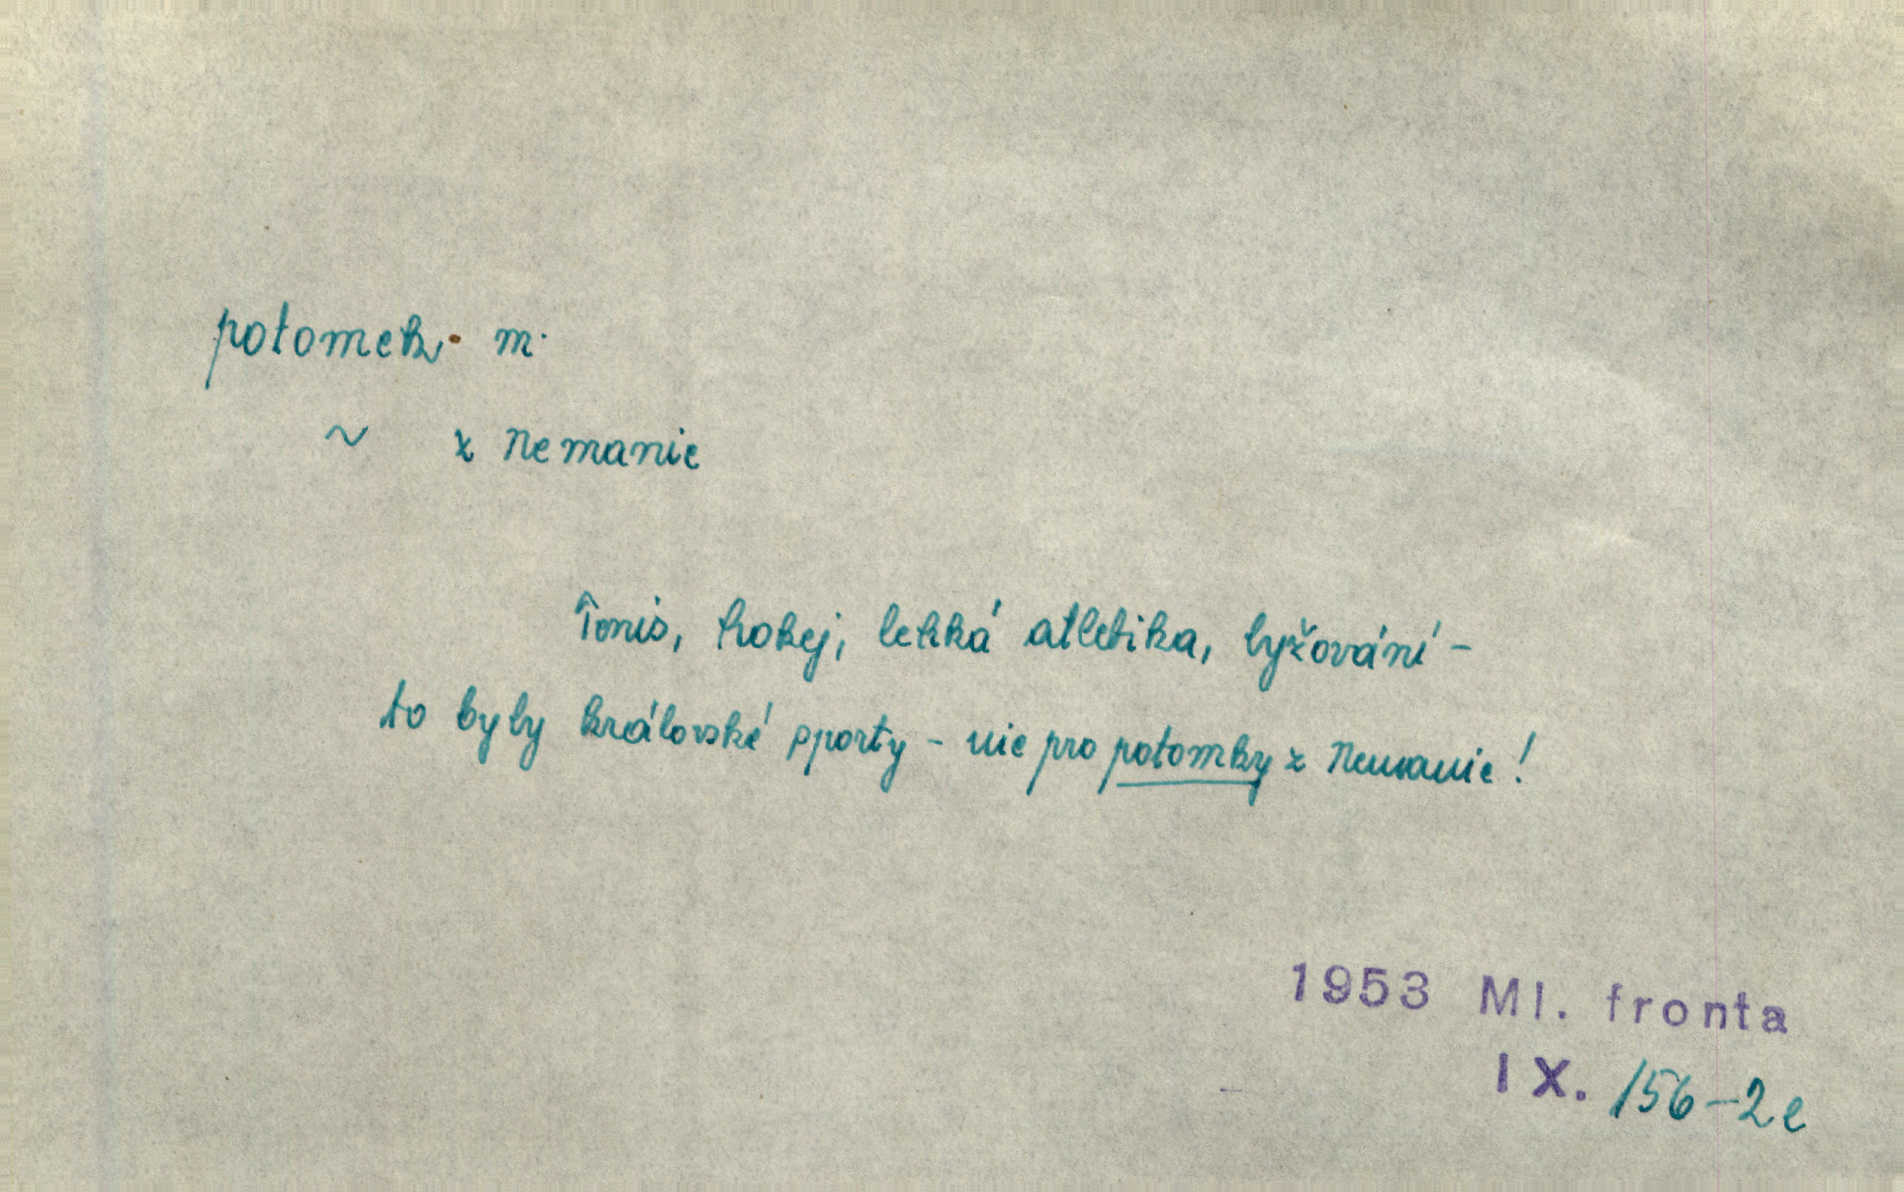 potomek m.
~ z Nemanic
Tenis, hokej, lehká atletika, lyžování -
to byly královské sporty - nic pro potomky z Nemanic!
1953 Ml. fronta
IX. 156-2e